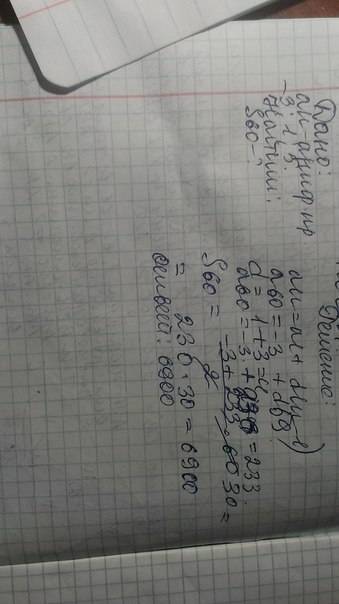 Дано:
an - ариф пр
-3; 1;
Найти:
S60 - ?
Решение:
an = a1 + d(n-1)
a60 = -3 + d59
d = 1+3=4
a60 = -3 + 236 = 233
S60 = -3 + 233 / 2 · 60 30 =
= 230 · 30 = 6900
Ответ: 6900